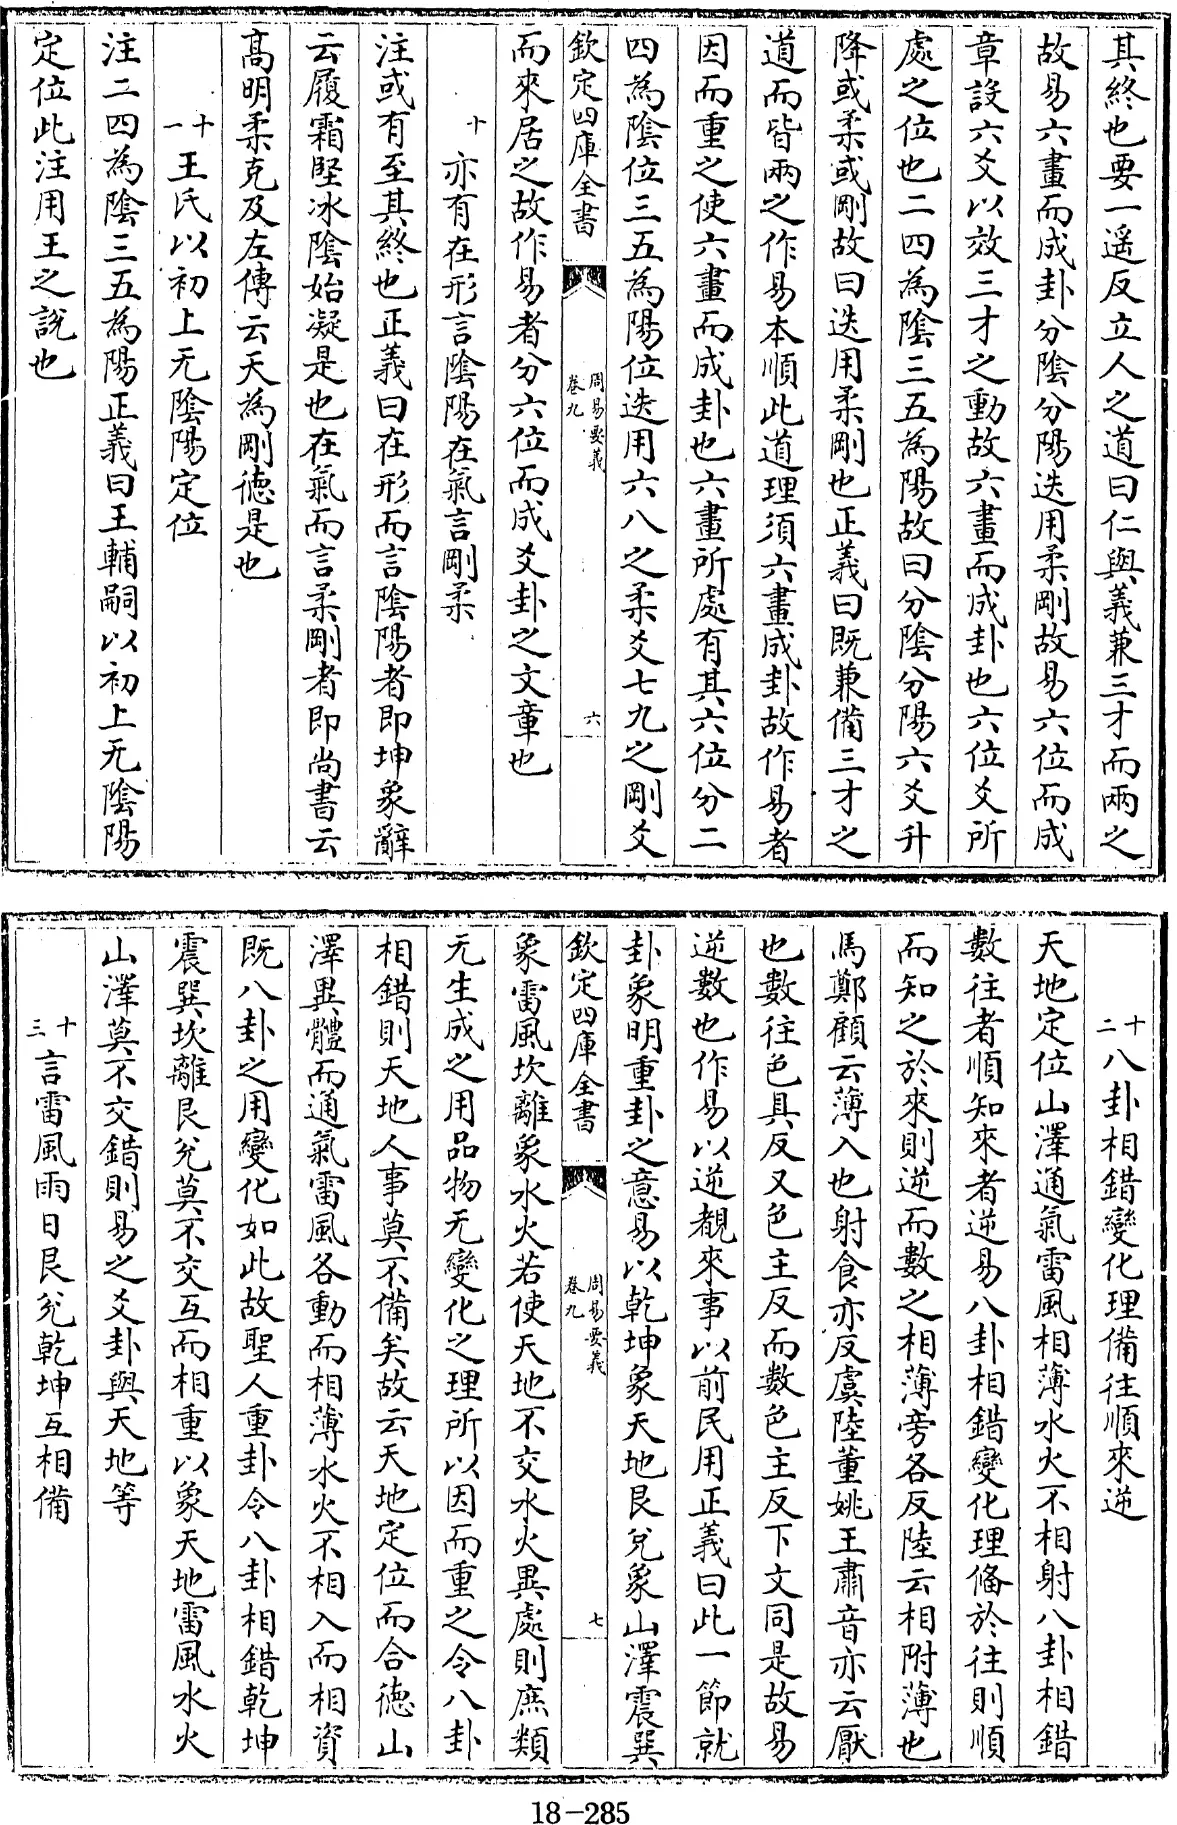 其終也要一遥反立人之道曰仁與義兼三才而兩之
故易六畫而成卦分陰分陽迭用柔剛故易六位而成
章設六爻以效三才之動故六畫而成卦也六位爻所
處之位也二四為陰三五為陽故曰分陰分陽六爻升
降或柔或剛故曰迭用柔剛也正義曰既兼備三才之
道而皆兩之作易本順此道理須六畫成卦故作易者
因而重之使六畫而成卦也六畫所處有其六位分二
四為陰位三五為陽位迭用六八之柔爻七九之剛爻
欽定四庫全書
周易要義
卷九
六
而來居之故作易者分六位而成爻卦之文章也
十 亦有在形言陰陽在氣言剛柔
注或有至其終也正義曰在形而言陰陽者即坤象辭
云履霜堅冰陰始凝是也在氣而言柔剛者即尚書云
高明柔克及左傳云天為剛德是也
十一 王氏以初上无陰陽定位
注二四為陰三五為陽正義曰王輔嗣以初上无陰陽
定位此注用王之說也
十二 八卦相錯變化理備往順來逆
天地定位山澤通氣雷風相薄水火不相射八卦相錯
數往者順知來者逆易八卦相錯變化理俻於往則順
而知之於來則逆而數之相薄旁各反陸云相附薄也
馬鄭顧云薄入也射食亦反虞陸董姚王肅音亦云厭
也數往色具反又色主反而數色主反下文同是故易
逆數也作易以逆覩來事以前民用正義曰此一節就
卦象明重卦之意易以乾坤象天地艮兌象山澤震巽
欽定四庫全書
周易要義
卷九
七
象雷風坎離象水火若使天地不交水火異處則庶類
无生成之用品物无變化之理所以因而重之令八卦
相錯則天地人事莫不備矣故云天地定位而合德山
澤異體而通氣雷風各動而相薄水火不相入而相資
既八卦之用變化如此故聖人重卦令八卦相錯乾坤
震巽坎離艮兌莫不交互而相重以象天地雷風水火
山澤莫不交錯則易之爻卦與天地等
十三 言雷風雨日艮兌乾坤互相備
18-285